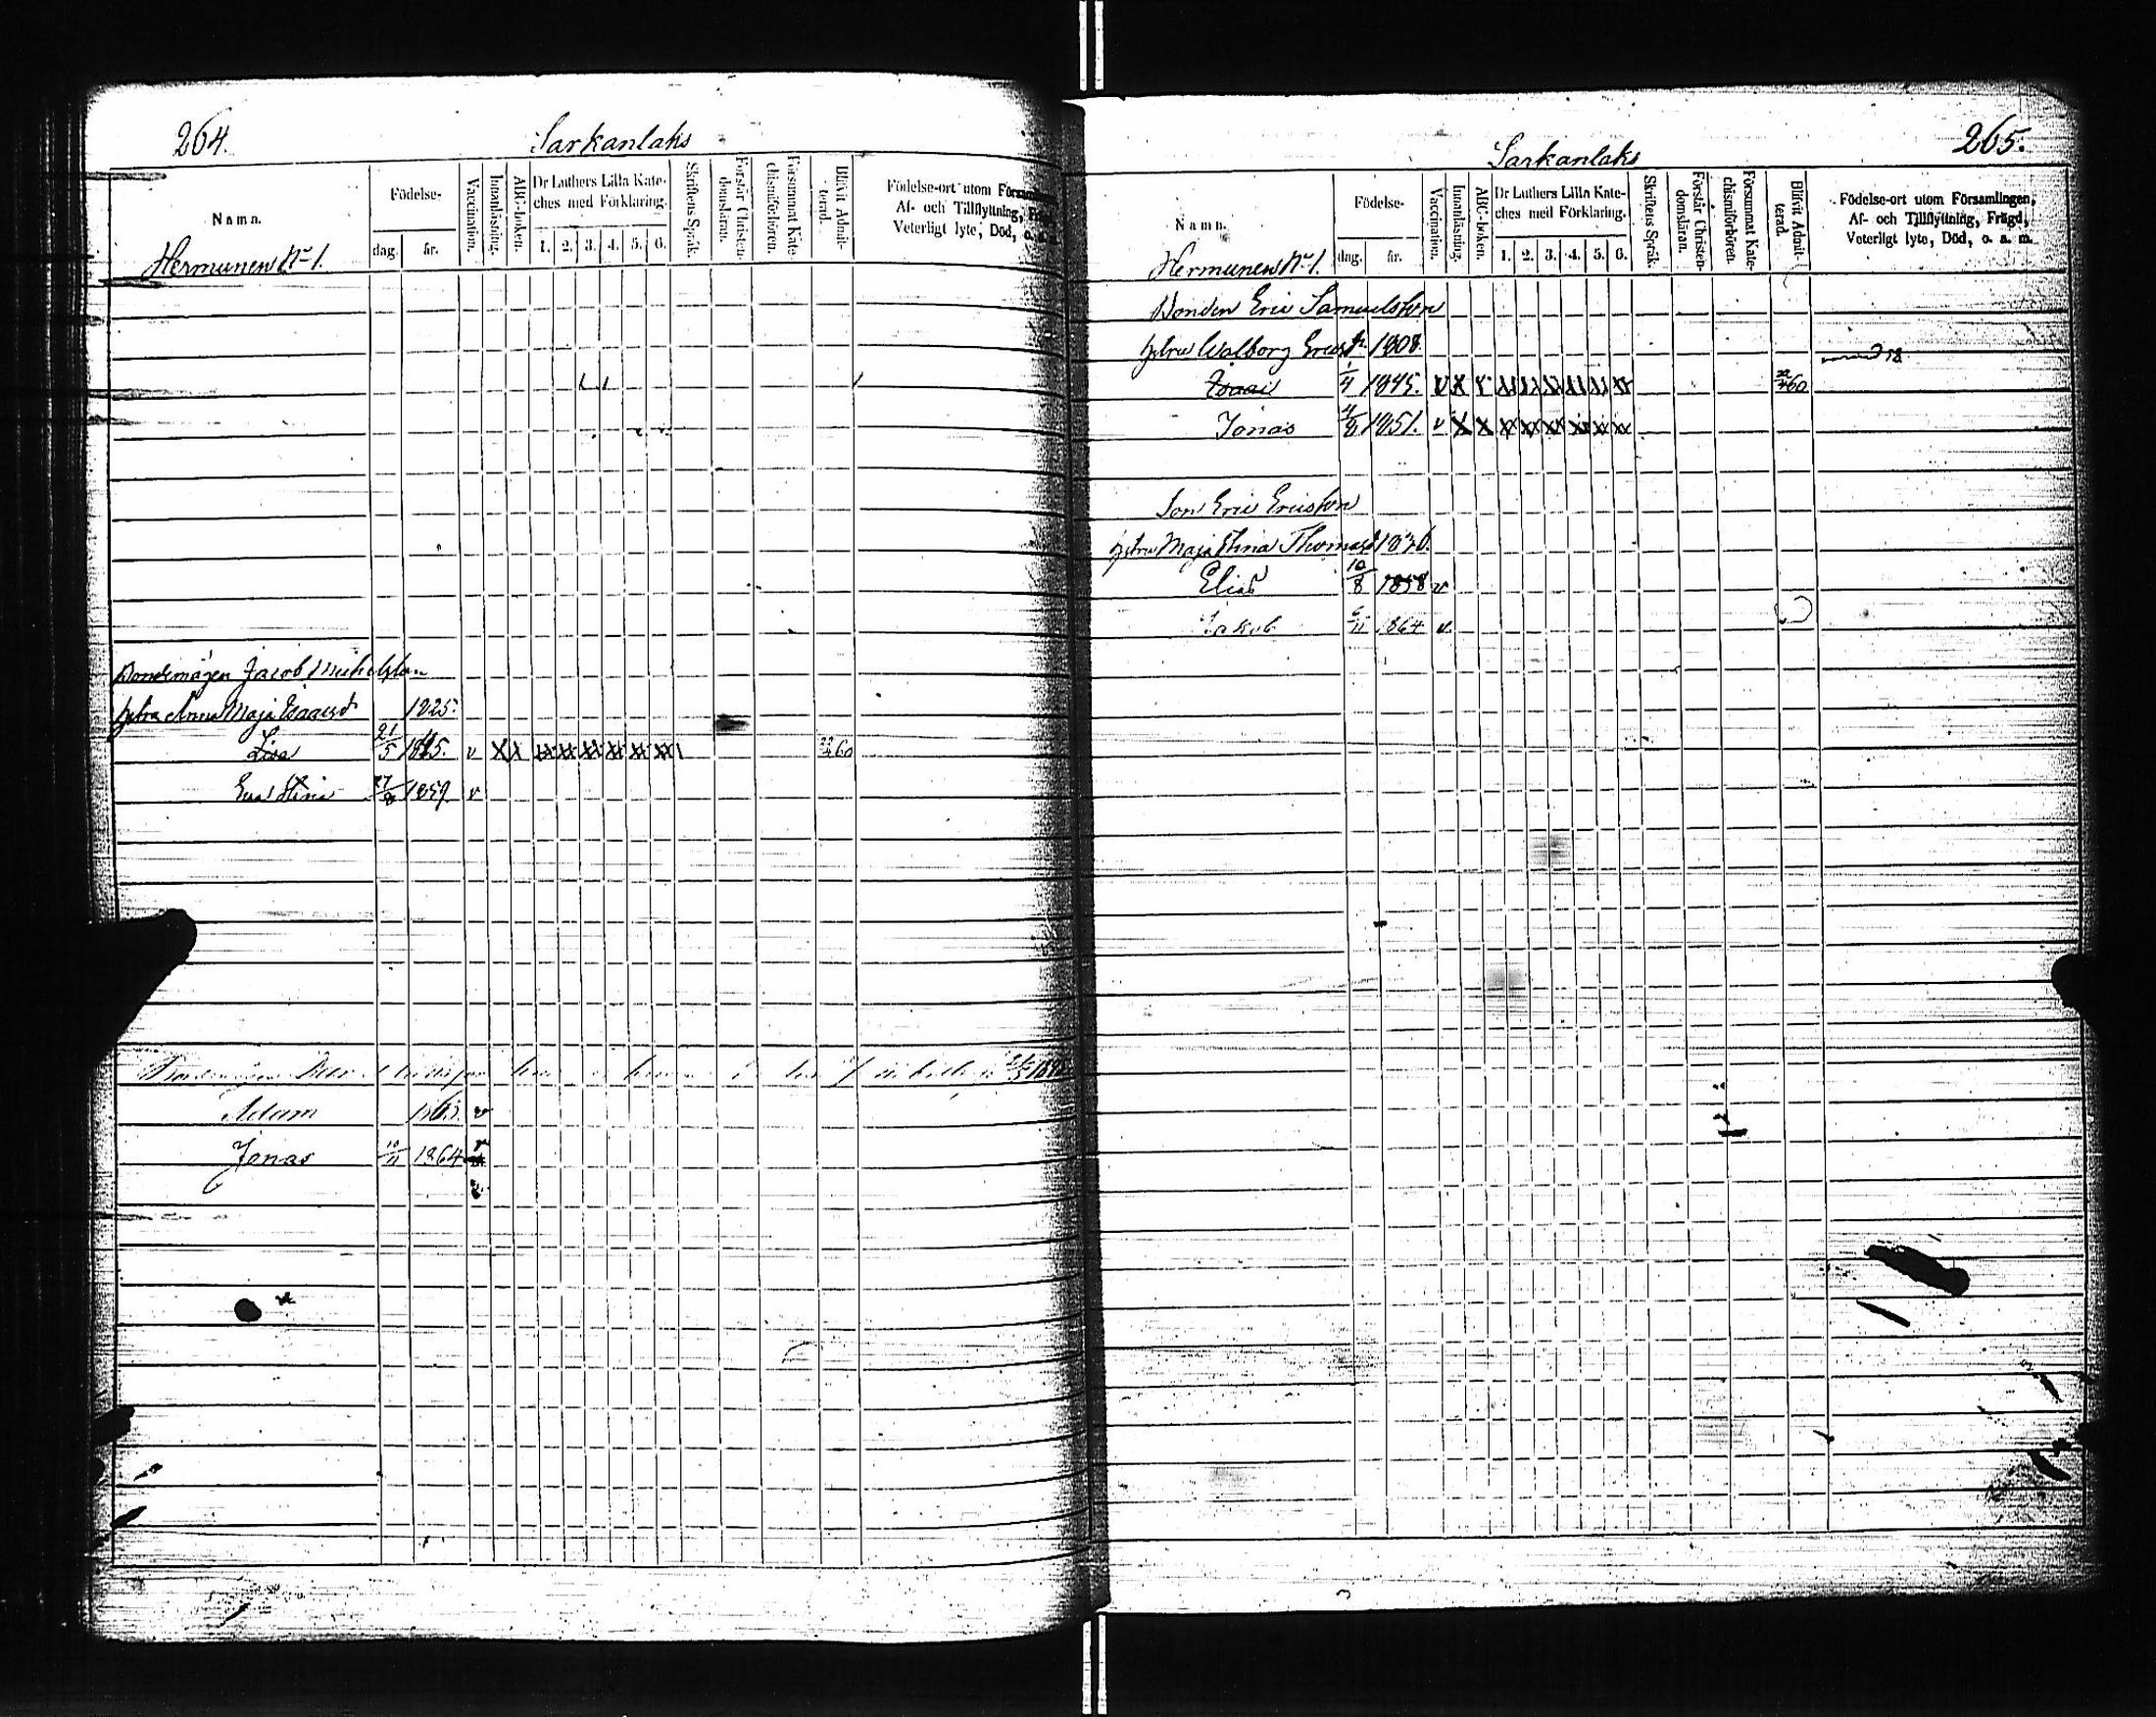 264.
Sarkanlaks
Namn.
Födelse-
dag.
år.
Vaccination.
Innanläsning.
ABC-boken.
Dr Luthers Lilla Kate-
ches med Förklaring.
1. 2. 3. 4. 5. 6.
Skriftens Språk.
Förstår Christen-
domsläran.
Försummat Kate-
chismiförhören.
Blifvit Admit-
terad.
Födelse-ort utom
Af- och Tillflyttning,
Veterligt lyte, Död, o. a. m.
Hermunen No 1.
Bondemågen Jacob
Anna Maja Isaacsd. 1825.
Lisa 21/5 1845. v 60
Eva Stina 27/8 1859. v
Adam v
Jonas 1864
265.
Sarkanlaks
Namn.
Födelse-
dag.
år.
Vaccination.
Innanläsning.
ABC-boken.
Dr Luthers Lilla Kate-
ches med Förklaring.
1. 2. 3. 4. 5. 6.
Skriftens Språk.
Förstår Christen-
domsläran.
Försummat Kate-
chismiförhören.
Blifvit Admit-
terad.
Födelse-ort utom Församlingen,
Af- och Tillflyttning, Frägd,
Veterligt lyte, Död, o. a. m.
Hermunen No 1.
Bonden Eric Samuelsson
Walborg Ericsd. 1808.
Isaac 1/4 1845. v 60
Jonas 1851. v
Son Eric Ericsson
Maja Stina Thomasd.
Elias 10/8 1858 v
Jakob 6/11 1864 v.